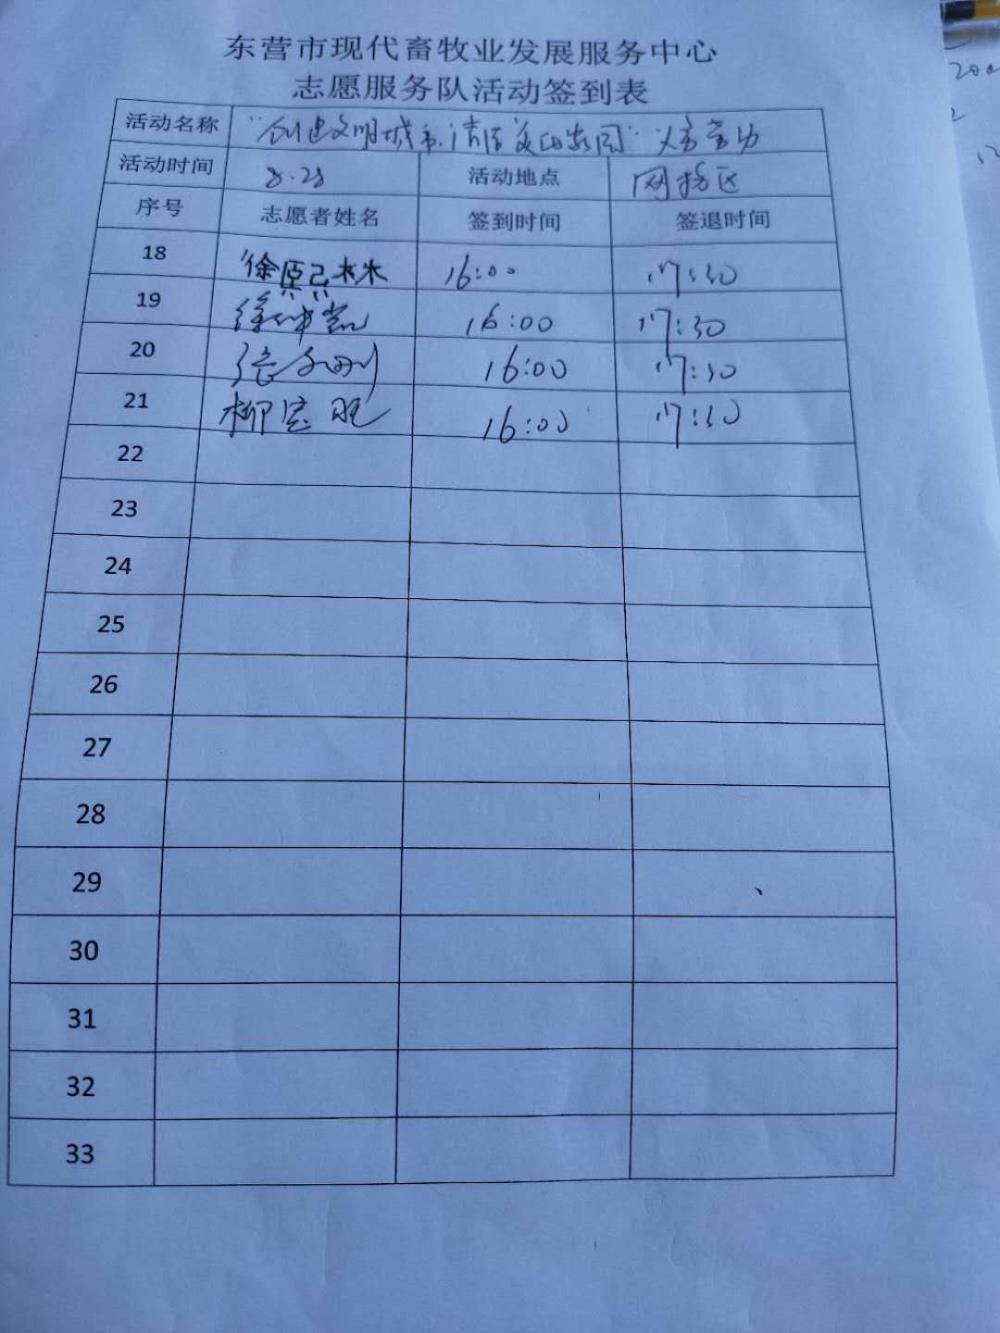 东营市现代畜牧业发展服务中心
志愿服务队活动签到表
活动名称 "创建文明城市,清洁美丽家园"义务劳动
活动时间 8.28 活动地点 网格区
序号 志愿者姓名 签到时间 签退时间
18 徐熙林 16:00 17:30
19 徐 凯 16:00 17:30
20 张文刚 16:00 17:30
21 柳宝旺 16:00 17:30
22
23
24
25
26
27
28
29
30
31
32
33